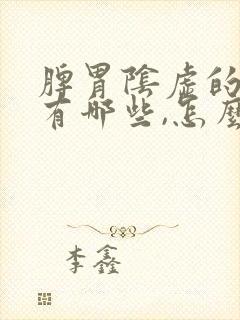 脾胃陰虛的
有哪些,怎麼
李鑫